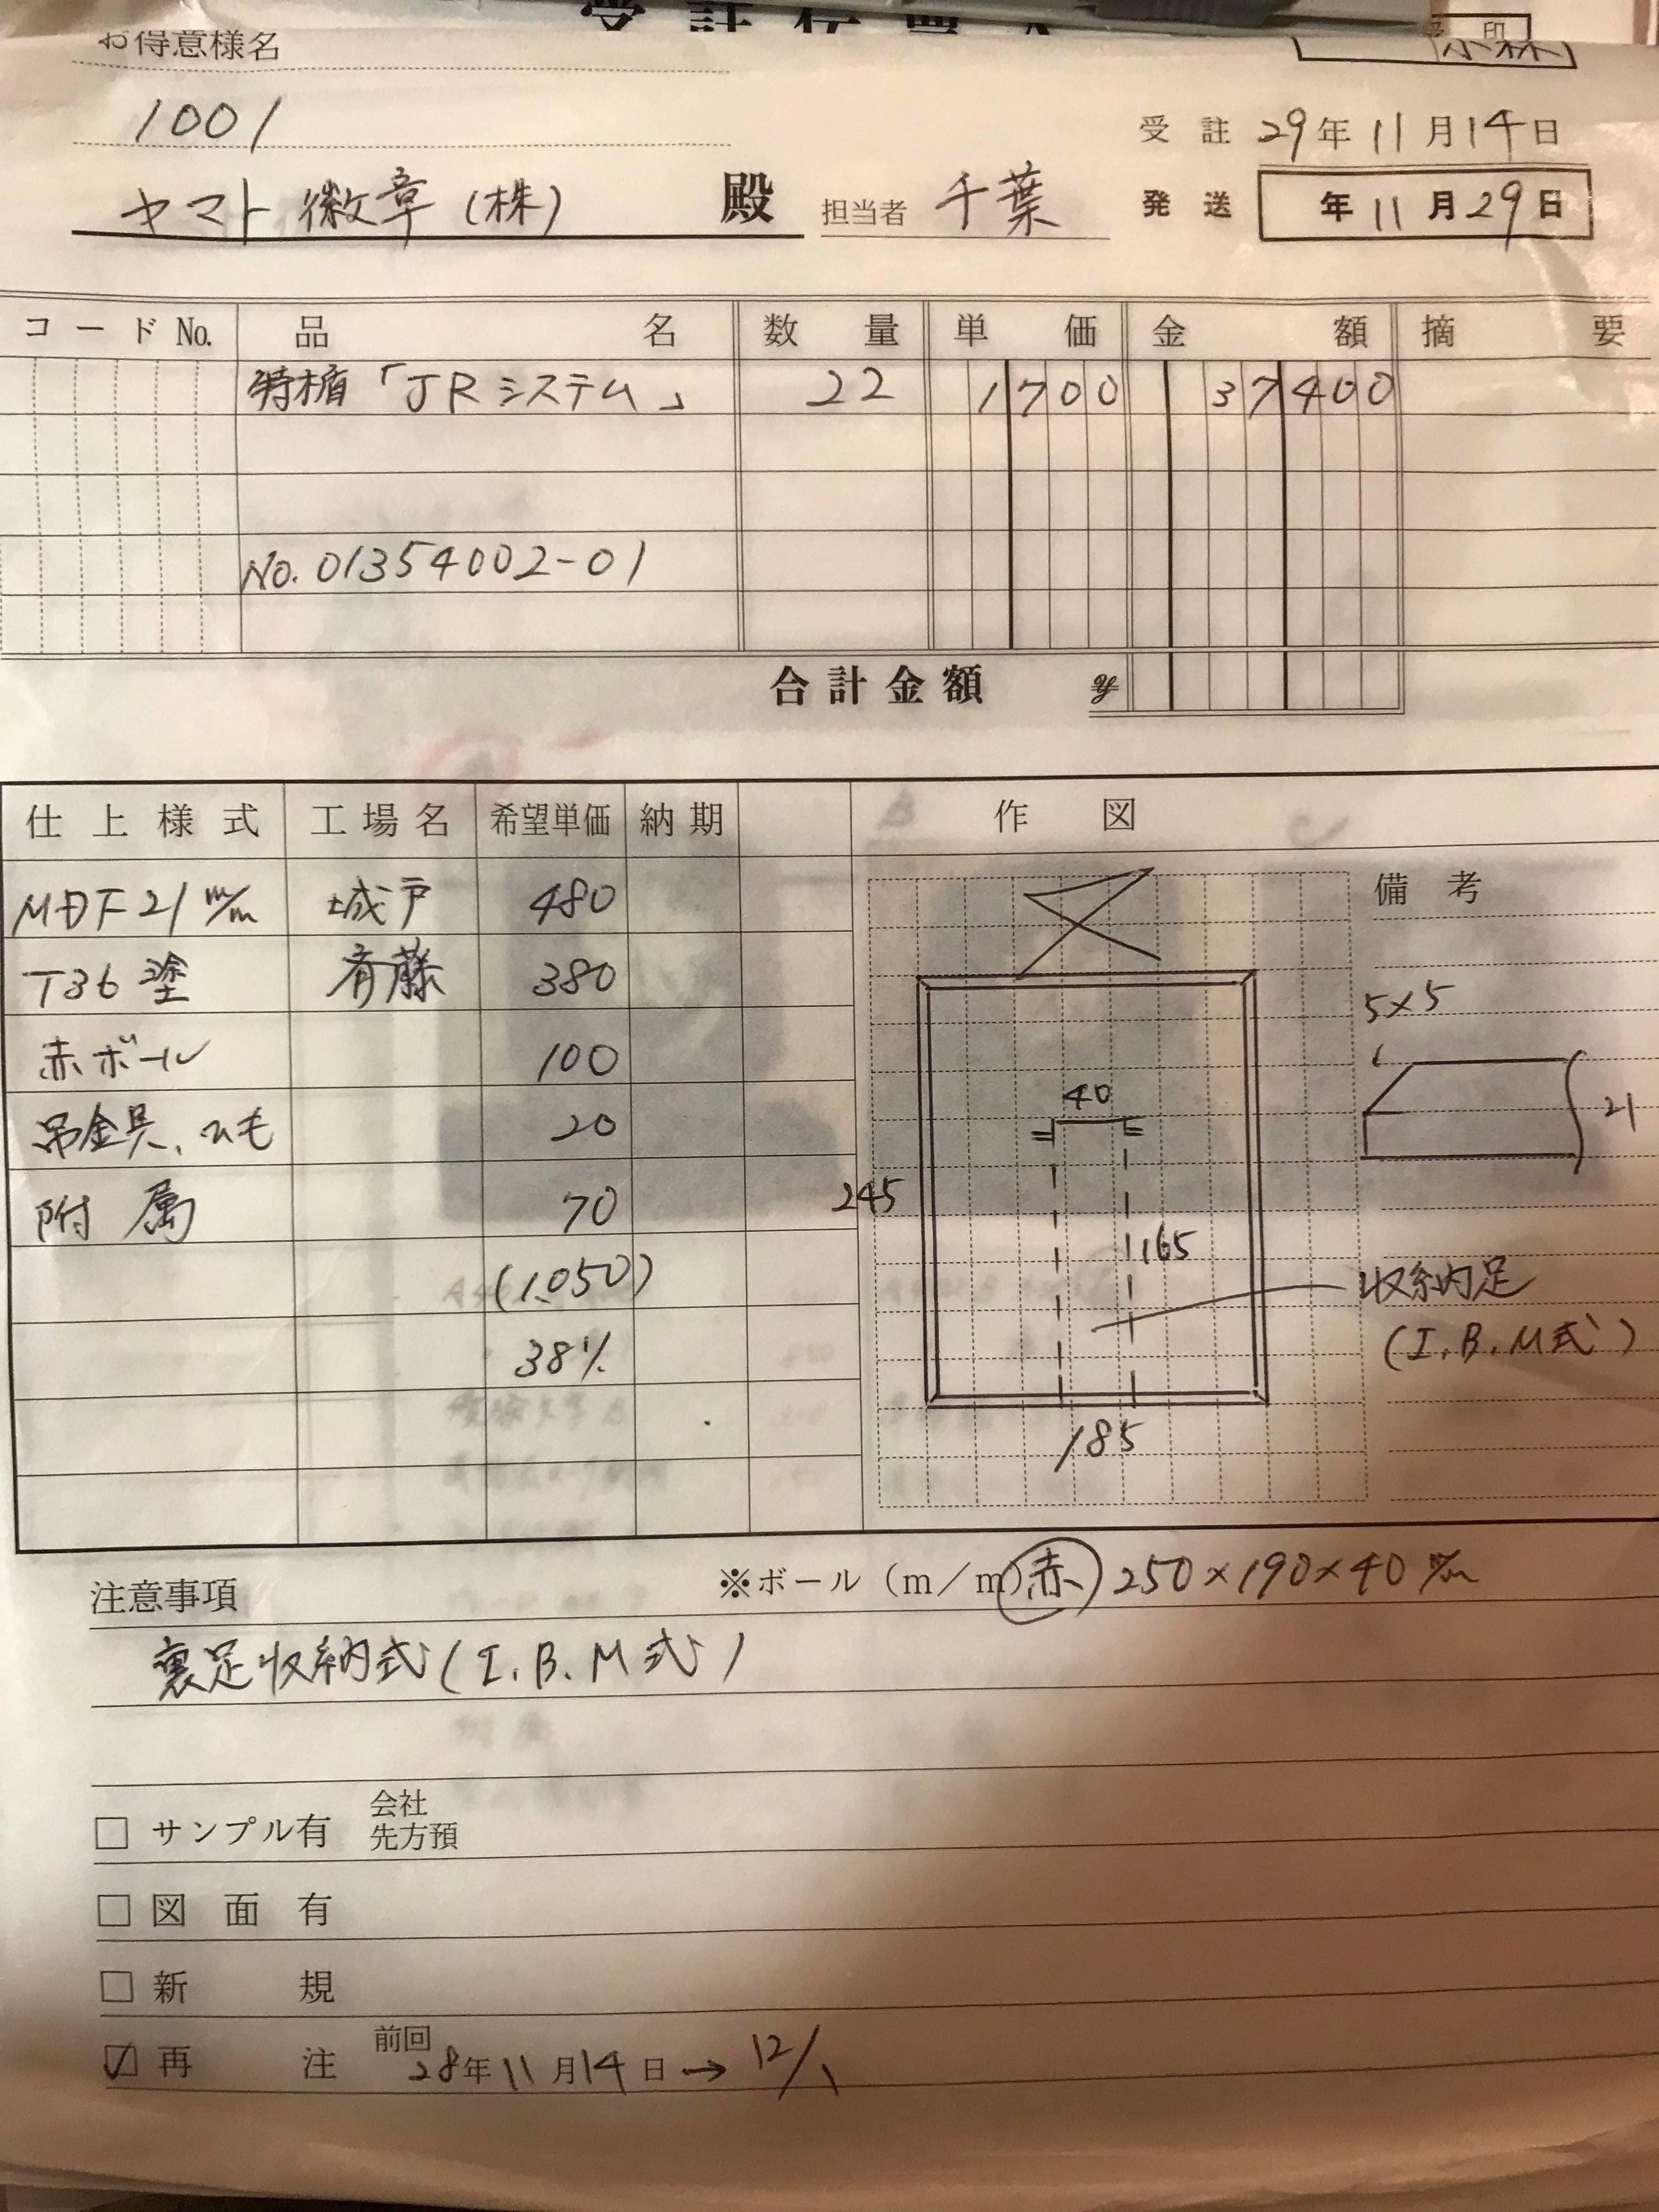 お得意様名
印
小林
1001
受註 29年11月14日
ヤマト徽章(株) 殿 担当者 千葉
発送 年11月29日
コードNo. 品名 数量 単価 金額 摘要
特楯「JRシステム」 22 1700 37400
No.01354002-01
合計金額 ¥
仕上様式 工場名 希望単価 納期 作図
備考
MDF21m/m 城戸 480
T36塗 斉藤 380
5×5
赤ボール 100
40
21
吊金具、ひも 20
附属 70
245
165
(1.050)
収納足
38%
(I.B.M式)
185
※ボール(m/m) 赤 250×190×40m/m
注意事項
裏足収納式(I.B.M式)
□ サンプル有 会社
先方預
□ 図面有
□ 新規
☑ 再注 前回
28年11月14日→12/1